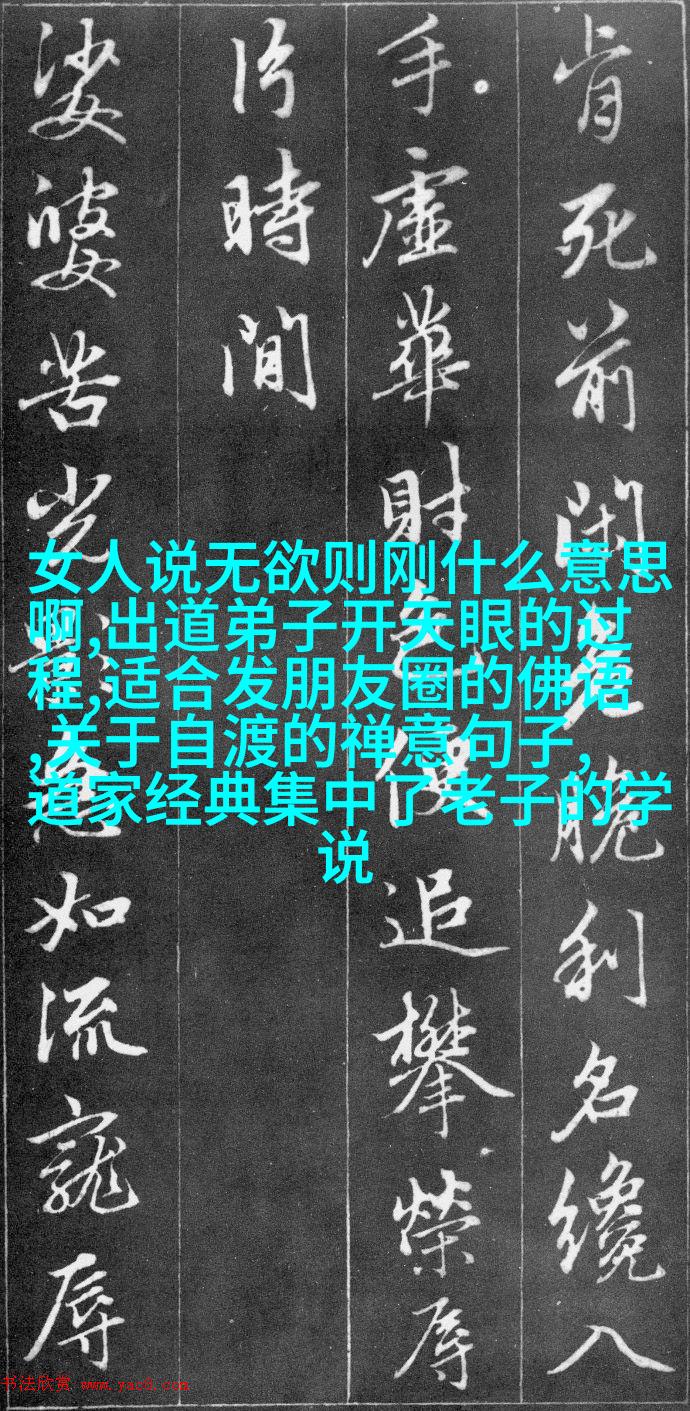 肯死前閑危脆利名纔入
手虛華財色便追攀榮辱
片時間
娑婆苦光影急如流寵辱
女人说无欲则刚什么意思
啊,出道弟子开天眼的过
程,适合发朋友圈的佛语
,关于自渡的禅意句子,
道家经典集中了老子的学
说
书法欣赏 www.yac8.com